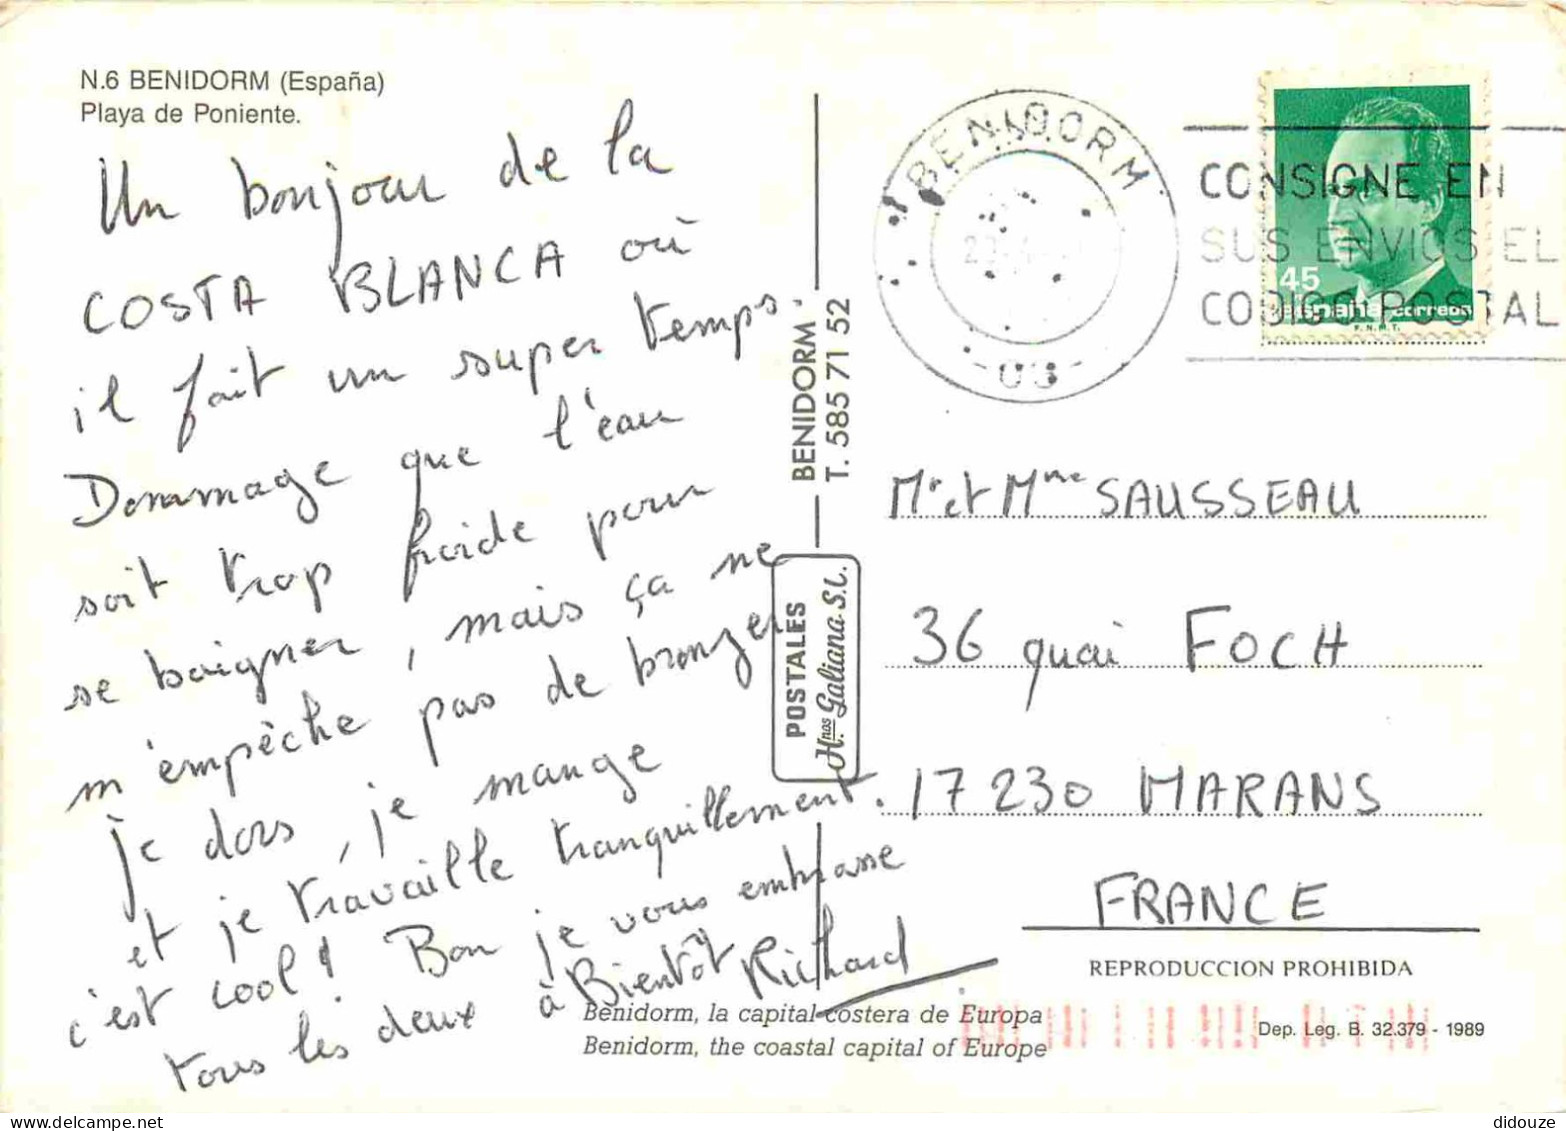 N.6 BENIDORM (España)
Playa de Poniente.
Un bonjour de la
COSTA BLANCA où
il fait un super temps.
Dommage que l'eau
soit trop froide pour
se baigner, mais ça ne
m'empêche pas de bronzer
je dors, je mange
et je travaille tranquillement.
c'est cool! Bon je vous embrasse
tous les deux à Bientôt Richard
BENIDORM
T. 585 71 52
POSTALES
Hnos Galiana S.L.
BENIDORM
-03-
CONSIGNE EN
SUS ENVIOS EL
CODIGO POSTAL
45
España correos
F.N.M.T.
Mr et Mme SAUSSEAU
36 quai FOCH
17230 MARANS
FRANCE
REPRODUCCION PROHIBIDA
Benidorm, la capital costera de Europa
Benidorm, the coastal capital of Europe
Dep. Leg. B. 32.379 - 1989
didouze